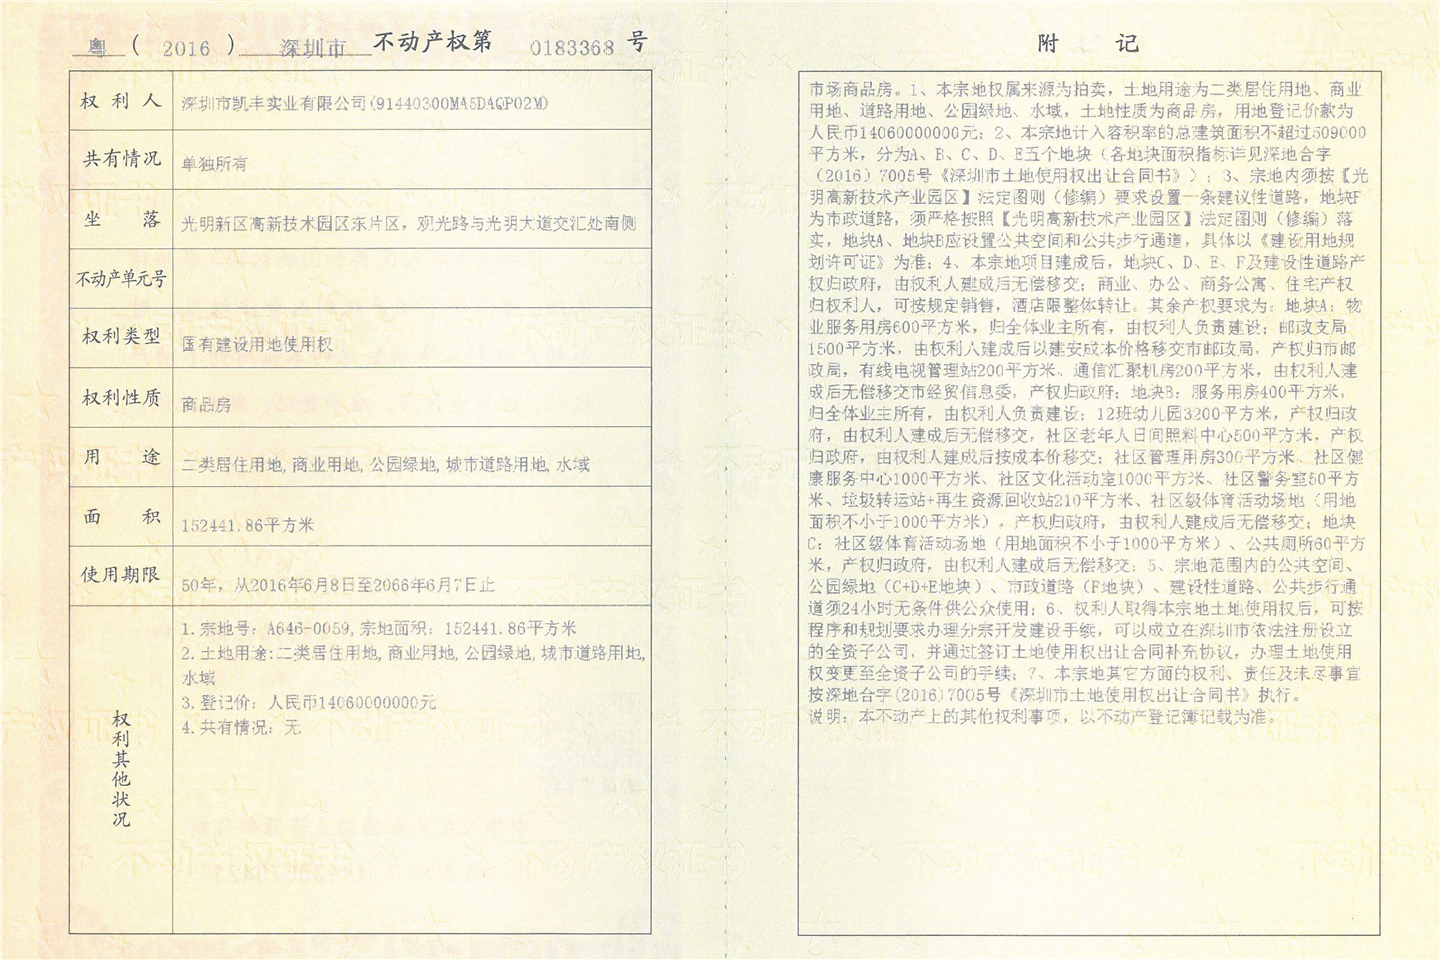 粤（2016）深圳市不动产权第0183368号
权利人 深圳市凯丰实业有限公司(91440300MA5DAQP02M)
共有情况 单独所有
坐落 光明新区高新技术园区东片区，观光路与光明大道交汇处南侧
不动产单元号
权利类型 国有建设用地使用权
权利性质 商品房
用途 二类居住用地,商业用地,公园绿地,城市道路用地,水域
面积 152441.86平方米
使用期限 50年，从2016年6月8日至2066年6月7日止
权利其他状况
1.宗地号：A646-0059,宗地面积：152441.86平方米
2.土地用途:二类居住用地,商业用地,公园绿地,城市道路用地,
水域
3.登记价：人民币14060000000元
4.共有情况：无
附记
市场商品房。1、本宗地权属来源为拍卖，土地用途为二类居住用地、商业
用地、道路用地、公园绿地、水域，土地性质为商品房，用地登记价款为
人民币14060000000元；2、本宗地计入容积率的总建筑面积不超过509000
平方米，分为A、B、C、D、E五个地块（各地块面积指标详见深地合字
（2016）7005号《深圳市土地使用权出让合同书》）；3、宗地内须按【光
明高新技术产业园区】法定图则（修编）要求设置一条建议性道路，地块F
为市政道路，须严格按照【光明高新技术产业园区】法定图则（修编）落
实，地块A、地块B应设置公共空间和公共步行通道，具体以《建设用地规
划许可证》为准；4、本宗地项目建成后，地块C、D、E、F及建设性道路产
权归政府，由权利人建成后无偿移交；商业、办公、商务公寓、住宅产权
归权利人，可按规定销售，酒店限整体转让。其余产权要求为：地块A：物
业服务用房600平方米，归全体业主所有，由权利人负责建设；邮政支局
1500平方米，由权利人建成后以建安成本价格移交市邮政局，产权归市邮
政局，有线电视管理站200平方米、通信汇聚机房200平方米，由权利人建
成后无偿移交市经贸信息委，产权归政府；地块B：服务用房400平方米，
归全体业主所有，由权利人负责建设；12班幼儿园3200平方米，产权归政
府，由权利人建成后无偿移交，社区老年人日间照料中心500平方米，产权
归政府，由权利人建成后按成本价移交；社区管理用房300平方米、社区健
康服务中心1000平方米、社区文化活动室1000平方米、社区警务室50平方
米、垃圾转运站+再生资源回收站210平方米、社区级体育活动场地（用地
面积不小于1000平方米），产权归政府，由权利人建成后无偿移交；地块
C：社区级体育活动场地（用地面积不小于1000平方米）、公共厕所60平方
米，产权归政府，由权利人建成后无偿移交；5、宗地范围内的公共空间、
公园绿地（C+D+E地块）、市政道路（F地块）、建设性道路、公共步行通
道须24小时无条件供公众使用；6、权利人取得本宗地土地使用权后，可按
程序和规划要求办理分宗开发建设手续，可以成立在深圳市依法注册设立
的全资子公司，并通过签订土地使用权出让合同补充协议，办理土地使用
权变更至全资子公司的手续；7、本宗地其它方面的权利、责任及未尽事宜
按深地合字(2016)7005号《深圳市土地使用权出让合同书》执行。
说明：本不动产上的其他权利事项，以不动产登记簿记载为准。